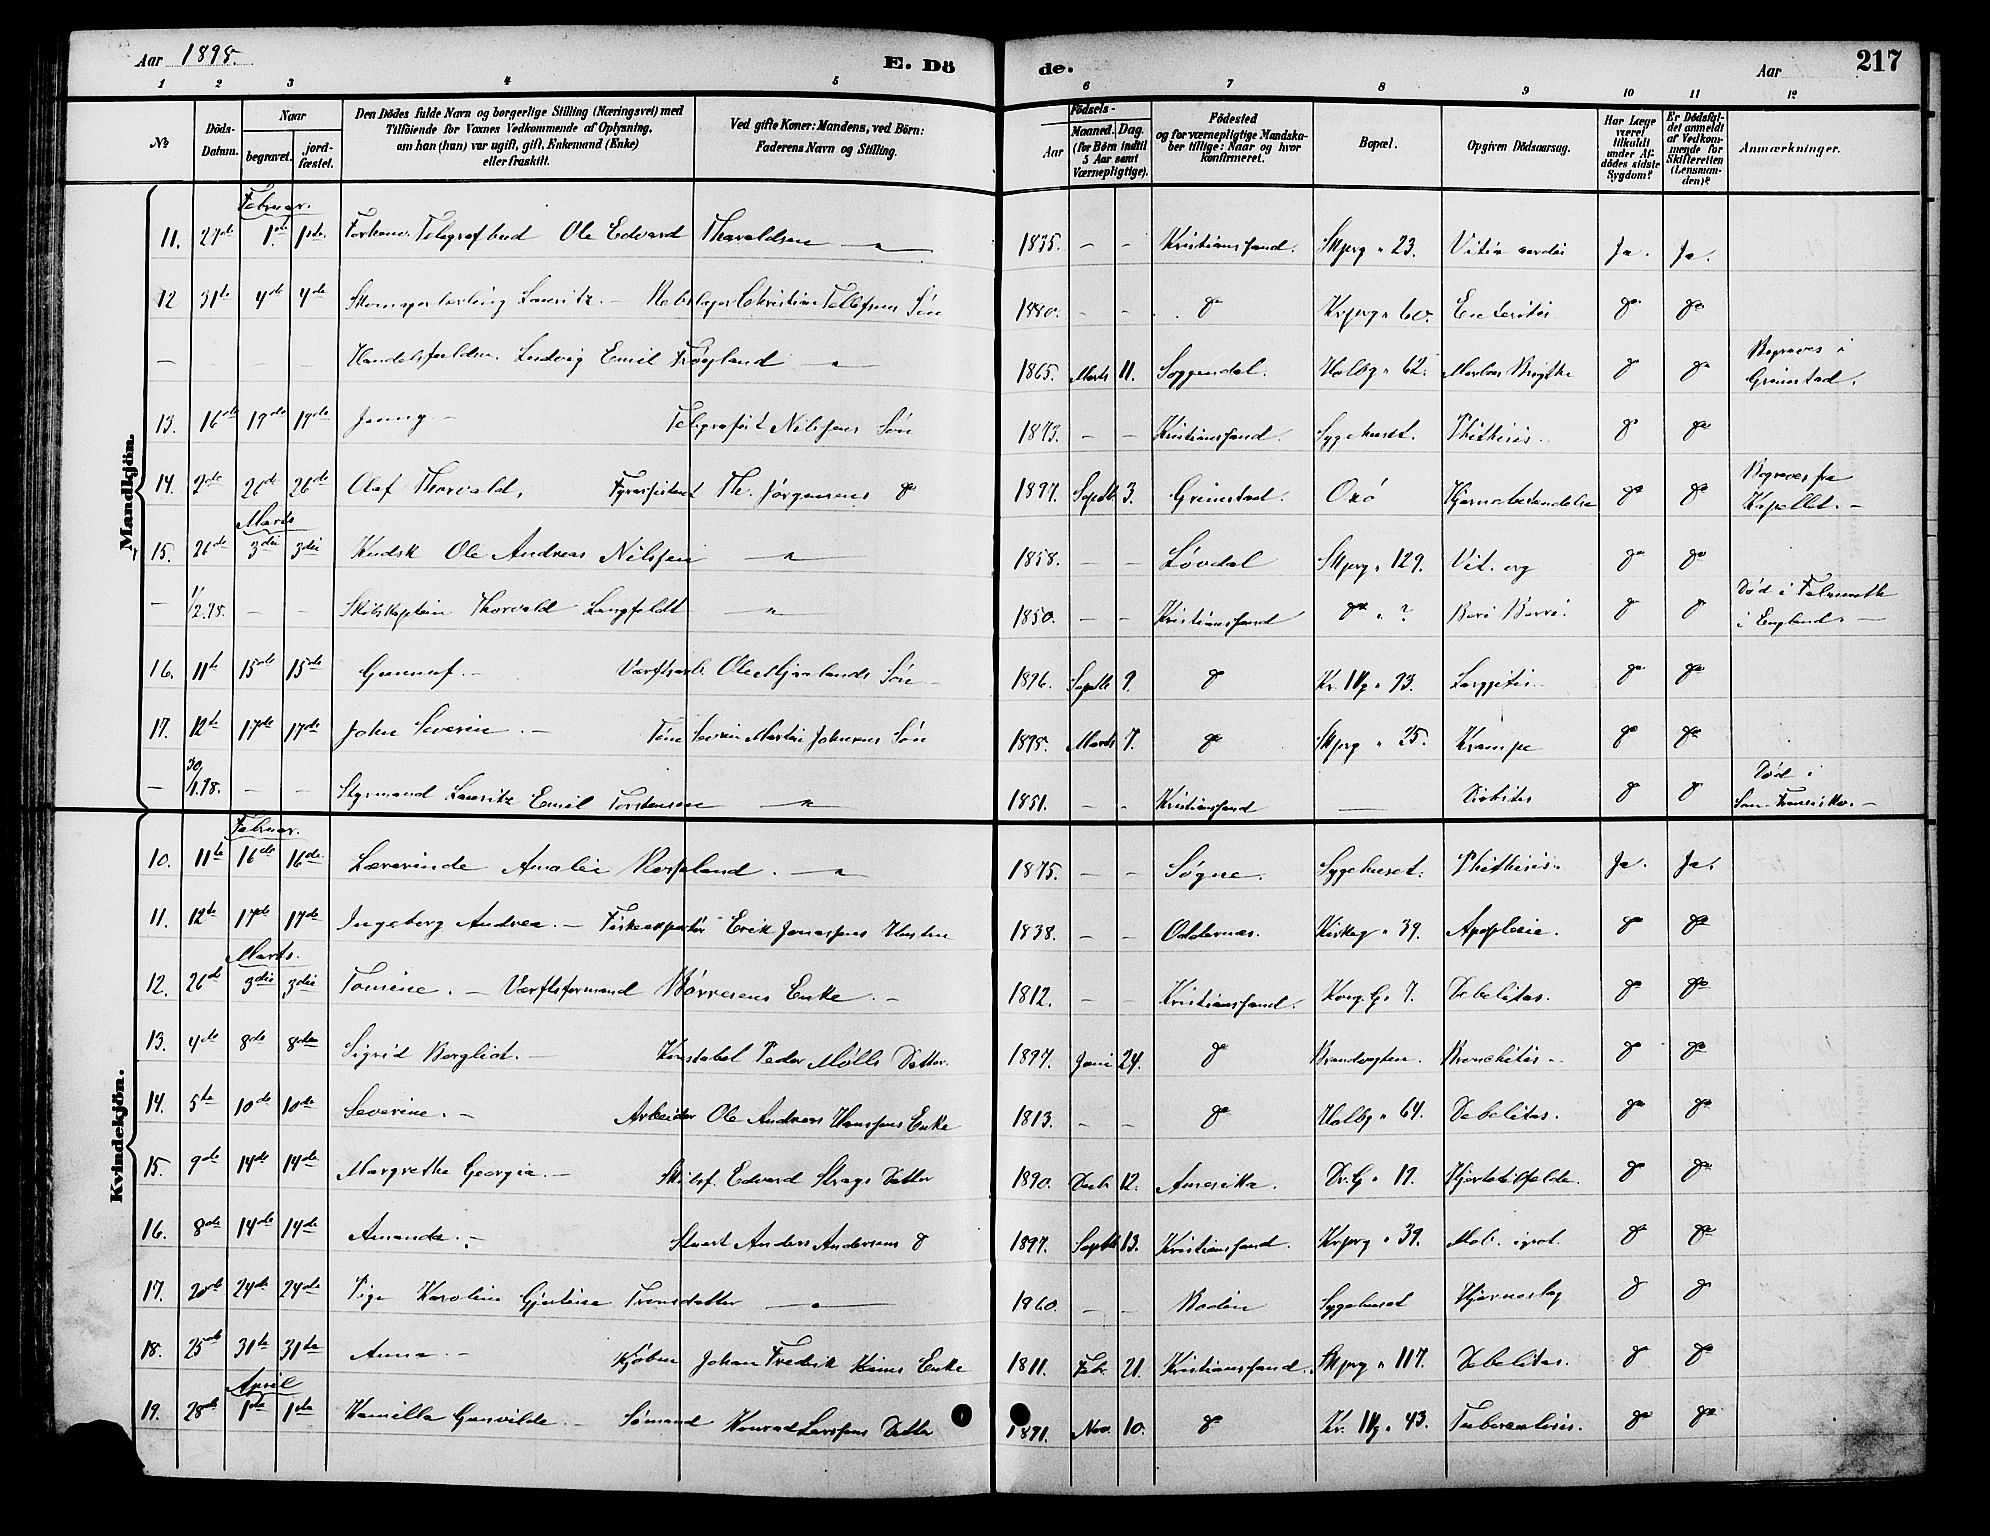 Aar 1898. E. Dö de. Aar 217
1 2 3 4 5 6 7 8 9 10 11 12
No
Döds-Datum.
Naar
begravet.
jord-fæstet.
Den Dödes fulde Navn og borgerlige Stilling (Næringsvei) med
Tilföiende for Voxnes Vedkommende af Oplysning,
om han (hun) var ugift, gift, Enkemand (Enke)
eller fraskilt.
Ved gifte Koner: Mandens, ved Börn:
Faderens Navn og Stilling.
Födsels-
Aar
Maaned. Dag.
(for Börn indtil
5 Aar samt
Værnepligtige).
Födested
og for værnepligtige Mandska-
ber tillige: Naar og hvor
konfirmeret.
Bopæl.
Opgiven Dödsaarsag.
Har Læge
været
tilkaldt
under Af-
dödes sidste
Sygdom?
Er Dödsfal-
det anmeldt
af Vedkom-
mende for
Skifteretten
(Lensman-
den)?
Anmærkninger.
Mandkjön.
Februar.
11. 27de 1ste 1ste Forhenv. Telegrafbud Ole Edvard Tharaldsen — " — 1835. - - Kristianssand. Skprg " 23. Vitia cordis Ja. Ja.
12 31te 4de 4de Skomagerlærling Lauritz. - Rebslager Christian Tellefsens Sön 1880. - - do Kvprg " 60. Enteritis do do
- - - - Ludvig Emil Frøyland " 1865. Marts 11. Soggendal. Holbg " 62. Morbus Brigthi do do Begraves i
Grimstad.
13. 16de 19de 19de Jenny - Telegrafist Nilssens Sön 1873. - - Kristianssand. Sygehuset. Phithisis. do do
14. 2de 26de 26de Olaf Thorvald, Fyrassistent Th. Jørgensens do 1897. Septb 3. Grimstad. Oxö Hjernebetændelse do do Begraves fra
Kapellet. -
Marts
15. 26de 3die 3die Kudsk Ole Andreas Nilssen — " — 1858. - - Løvdal Skprg " 129. Vit. org do do
- 1/2.98. - - Skibskaptein Thorvald Langfeldt — " — 1850. - - Kristianssand do " ? Beri Berri. do do Död i Falmouth
i England. -
16. 11te 15de 15de Gunnuf. - Værftsarb. Ole Skjævlands Sön 1896. Septb 9. do Kr. IVg " 93. do do
17. 12te 17de 17de John Severin. - Severin Martin Johnsens Sön 1895. Marts 7. do Skprg " 25. Krampe do do
- 30/1.98. - - Styrmand Lauritz Emil Torstensen — " — 1851. - - Kristianssand — do do Död i
San Francisko. -
Kvindekjön.
Februar.
10. 11te 16de 16de Lærerinde Amalie Repsland. — " 1875. - - Søgne. Sygehuset. Phithisis. Ja. Ja.
11. 12te 17de 17de Ingeborg Andrea. - Fiskeexportör Erik Jonassens Hustru 1838. - - Oddernæs. Kirkeg " 39. Apoplexie. do do
Marts.
12. 26de 3die 3die Tomine. - Værftsformand Børresens Enke. - 1812. - - Kristianssand. Kong.G. 7. Debelitas. do do
13. 4de 8de 8de Sigrid Bergliot. - Konstabel Peder Mølls Datter. 1897. Juni 24. do Brandvagten. Bronchitis - do do
14. 5te 10de 10de Severine. - Arbeider Ole Andreas Hanssens Enke 1813. - - do Holbg " 64. Debelitas. do do
15. 9de 14de 14de Margrethe Georgia. - Skibsf. Edvard Strays Datter 1890. Decb. 12. Amerika. Dr.G " 17. Hjertetilfælde. do do
16. 8de 14de 14de Amanda. - Stuert Anders Andersens do 1897. Septb 13. Kristianssand. Kvprg " 39. Mb. ignot. do do
17. 20de 24de 24de Pige Karoline Gjertine Tronsdatter — " — 1860. - - Sygehuset Hjerneslag do do
18. 25de 31te 31te Anna. - Kjøbm Johan Fredrik Enke 1811. Feb. 21. Kristianssand. Skprg " 117. Debelitas. do do
April
19. 28de 1ste 1ste Kamilla Gunvilde. - Sömand Konrad Larssens Datter 1891. Nov. 10. do Kr. IVg " 43. Tuberculosis. do do